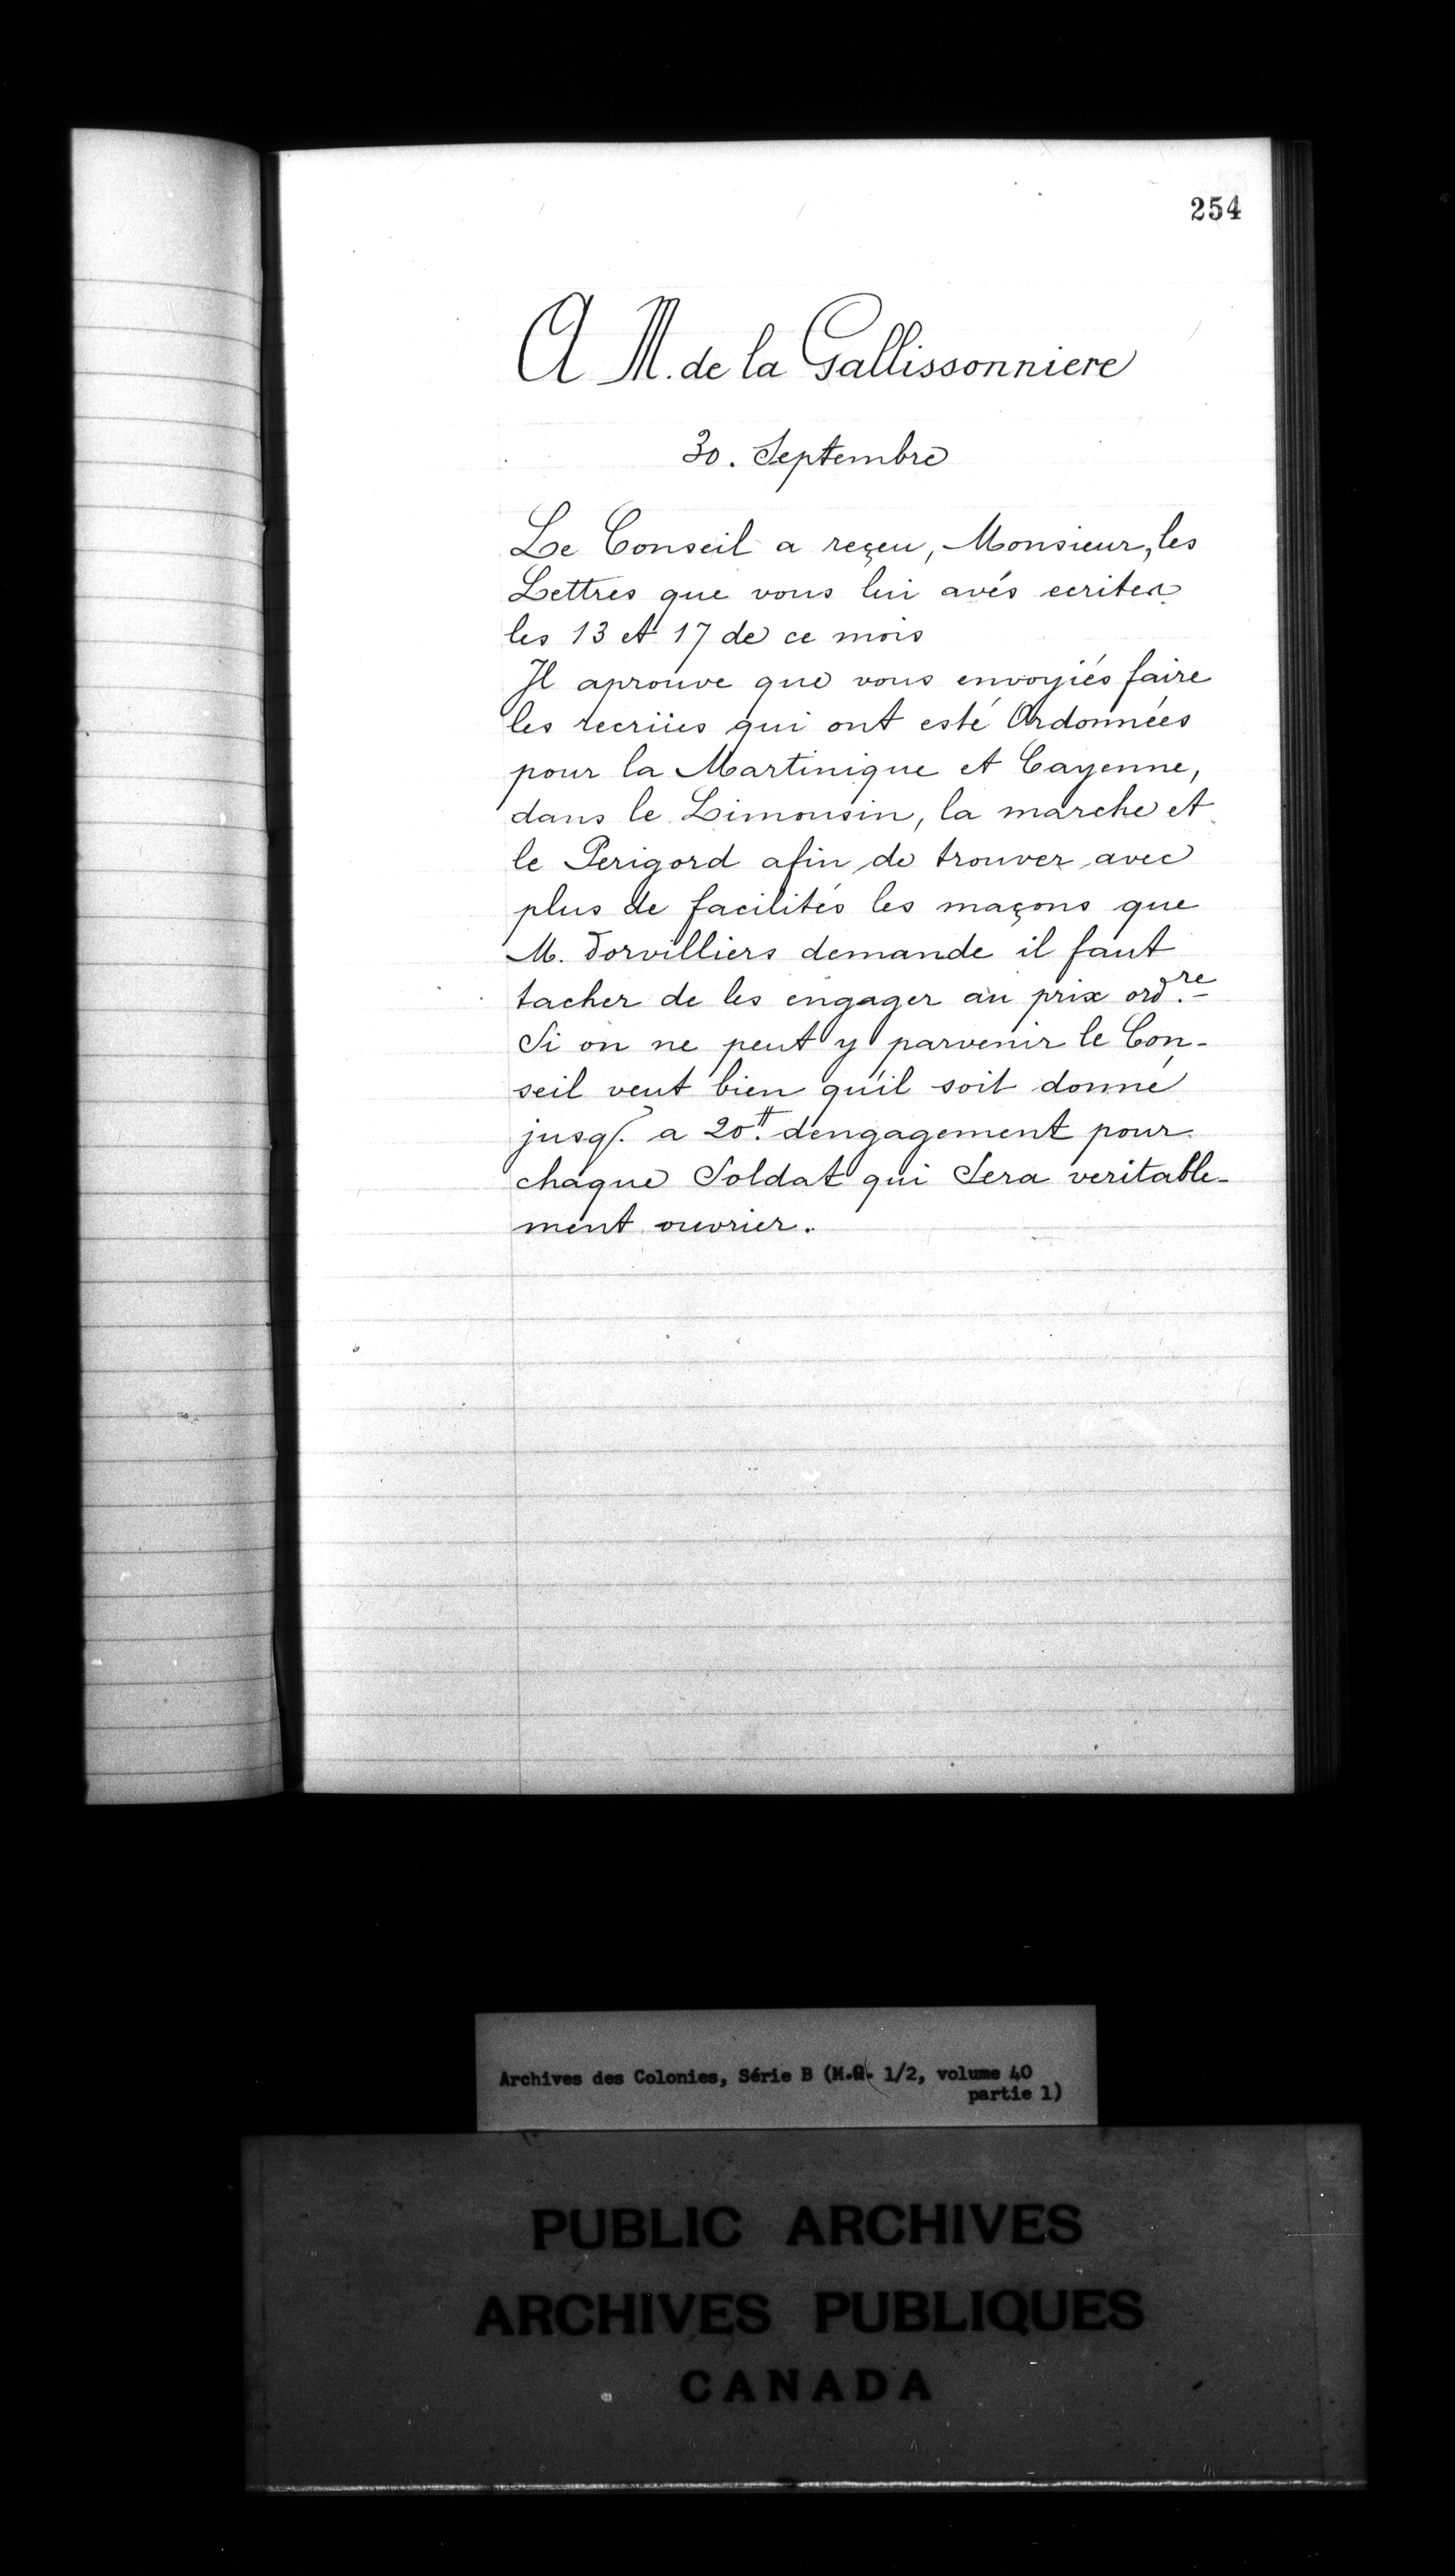 254
A M. de la Gallissonniere
30. Septembre
Le Conseil a reçeu, Monsieur, les
Lettres que vous lui avés ecrites
les 13 et 17 de ce mois
Il aprouve que vous envoyiés faire
les recrües qui ont esté Ordonnées
pour la Martinique et Cayenne,
dans le Limousin, la marche et
le Perigord afin de trouver avec
plus de facilités les maçons que
M. Dorvilliers demande il faut
tacher de les engager au prix ord.re
Si on ne peut y parvenir le Con-
seil veut bien qu'il soit donné
jusq. a 20.tt dengagement pour
chaque Soldat qui Sera veritable-
ment ouvrier.
Archives des Colonies, Série B (M.G. 1/2, volume 40
partie 1)
PUBLIC ARCHIVES
ARCHIVES PUBLIQUES
CANADA